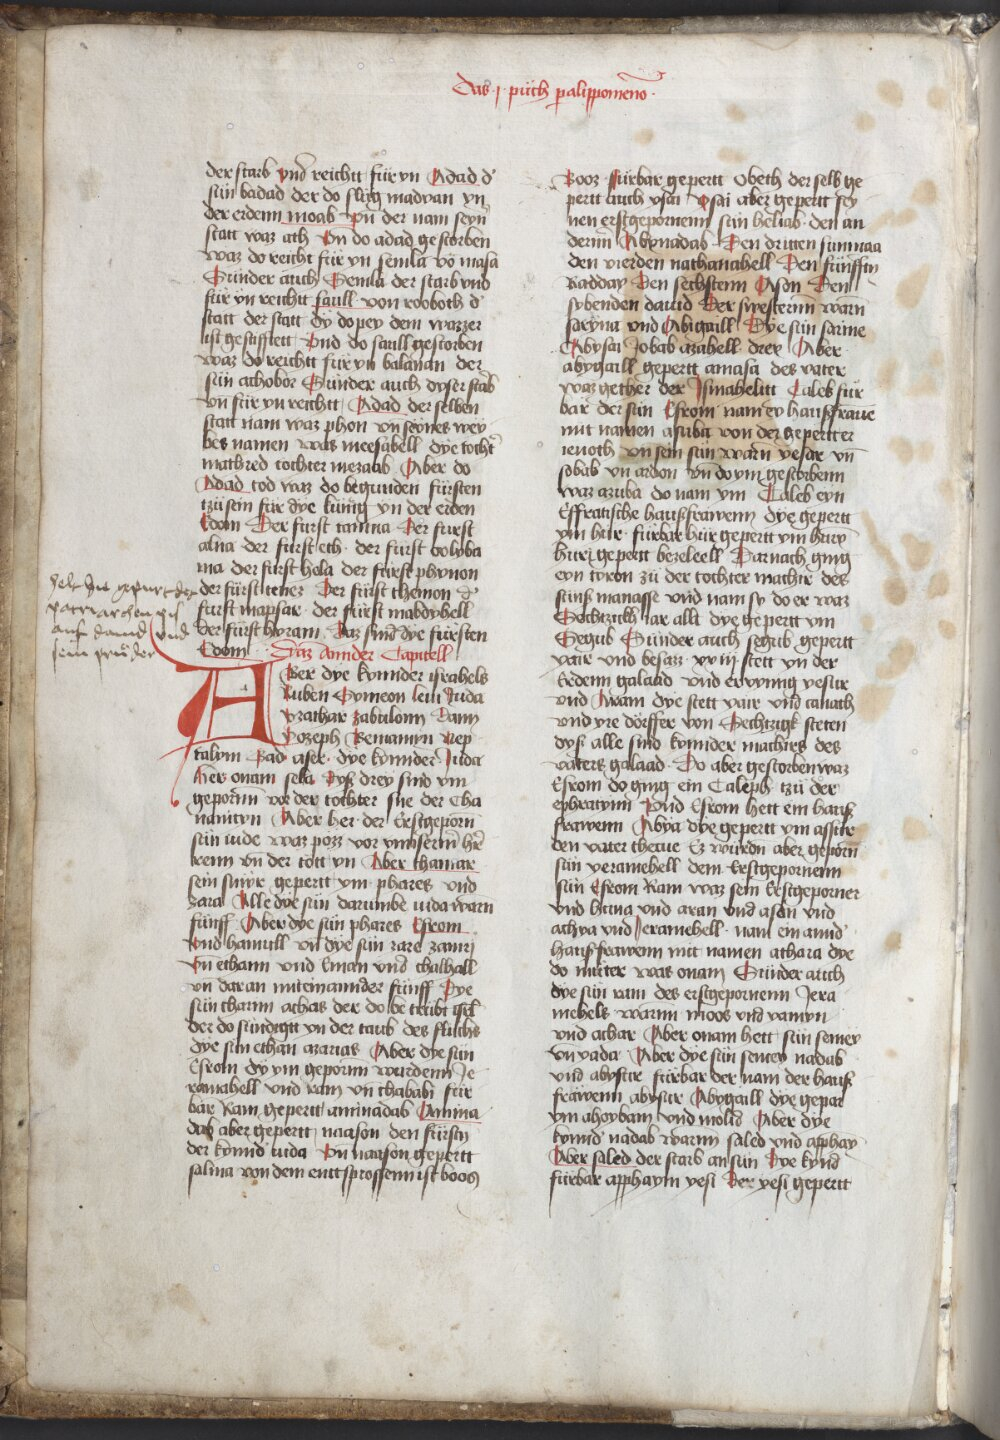 Das ·j· púch palippomeno·
der starb vnd reichtt für yn Adad d'
sún badad der do slúg madyan yn
der erdenn moab vn̄ der nam seyn̄
statt waz ath Vn̄ do adad gestorben
waz do reicht für yn semla vo masa
Sunder auch Semla der starb vnd
für yn reichtt saull von rooboth d'
statt der statt dÿ do pey dem wazzer
ist gestifftett Vnd do saull gestorben
waz do reichtt für yn balanan der
sún achobor Sunder auch dyser starb
vn für yn reichtt Adad der selben
statt nam waz phon vn seynes wey
bes namen was meesabell dye tocht'
mathred tochter mezaab Aber do
Adad tod waz do begunden fürsten
tzúsein für dye kúnig yn der erden
Edom Der fúrst tamna Der fúrst
alna der fúrst eth· der fúrst oolyba
ma der fúrst hela der fúrst phynon
der fúrst tenez Der fúrst themon d'
fúrst mapsar· der fúrst mabdyhell
der fúrst hyram Daz sind dye fürsten
Edom Daz annder Capitell
Aber dye kynnder israhels
Ruben Symeon leui Juda
yzathar zabulonn Dann
Yozeph Beniamyn Nep
talym Gad aser· dye kynnder Juda
Her onam sela Dyß drey sind ym
geporn̄n vo der tochter sue der Cha
nanityn Aber her· der Erstgeporn
sún iude waz pozz vor vnnserm h're
renn vn der tott yn Aber thamar
sein snur gepertt ym phares vnd
zara Alle dye sún darumbe iuda warn
fúnff Aber dye sún phares Esrom
Vnd hamull vn dye sún zare zamrj
Vn̄ ethann vnd Eman vnd thalhall
vn daran miteinannder fúnff Dye
sún tharmi achas der do betrúbt isrl
der do sündigtt yn der taub des flúchs
dye sún ethan azarias Aber dye sún
Esrom dÿ ym gepornn wurdenn Je
ramahell vnd ram vn thababi fúr
bar Ram gepertt aminadab Amina
dab aber gepertt naason den fürstn
der kÿnnd' iuda Vn naason gepertt
salma von dem enttsprossenn ist boos
sein prúder
Booz fúrbar gepertt Obeth der selb ge
pertt auch ysai Ysai aber gepertt sey
nen erstgepornenn sún heliab· den an
dernn Abynadab Den dritten summaa
den vierden nathanahell Den fúnfften
Radday Den sechstenn Asom Den
sybenden dauid Der swesternn warn
saruya vnd Abigaill Dye sún saruie
Abysai Jobab azahell drey Aber
abygaill gepertt amasa des vater
waz gether der Ismahelitt Caleb fúr
bar der sún Esrom nam ey haußfrawe
mit namen asuba von der gepertt er
ieuoth vn sein sún warn yesar vn̄
sobab vn ardon Vn̄ do ym gestorbenn
waz azuba do nam ym Caleb eyn
Effratische haußfrawenn dye gepertt
ym húr fúrbar húr gepertt ym húry
húri gepertt bezeleell Darnach ging
eyn zú der tochter mathir des
súnß manasse vnd nam sy do er waz
Sechtzigk iar allt dye gepertt ym
Segub Sunder auch segub gepertt
yair vnd besazz xxiij stett yn der
Erdenn galaad vnd er vyng yessur
vnd Aram dye stett yair vnd canath
vnd yre dörffer von Sechtzigk steten
dyß alle sind kynnder mathirs des
vaters galaad Do aber gestorben waz
Esrom do ging ein Caleph tzú der
ephratynn Vnd Esrom hett ein hauß
frawenn Abya dye gepertt ym assur
den vater thecue Ez wúrdn aber geporn
sún yeramehell dem Erstgepornenn
sún Esrom Ram waz sein Erstgeporner
vnd buna vnd aran vnd asom vnd
achya vnd Jeramehell· nam ein annd'
haußfrawenn mit namen athara dye
do múter was onam Sunder auch
dye sún ram des erstgepornenn Jera
mehels warnn moos vnd yamyn
vnd achar Aber onam hett sún semey
vn yada Aber dye sún semey nadab
vnd abysur fúrbar der nam der hauß
frawenn abysur Abygaill dye gepar
ym ahoybam vnd molid Aber dye
kynnd' nadab warnn saled vnd apphay
Aber saled der starb an sún Dye kynd
fúrbar apphaym yesi Der yesi gepertt